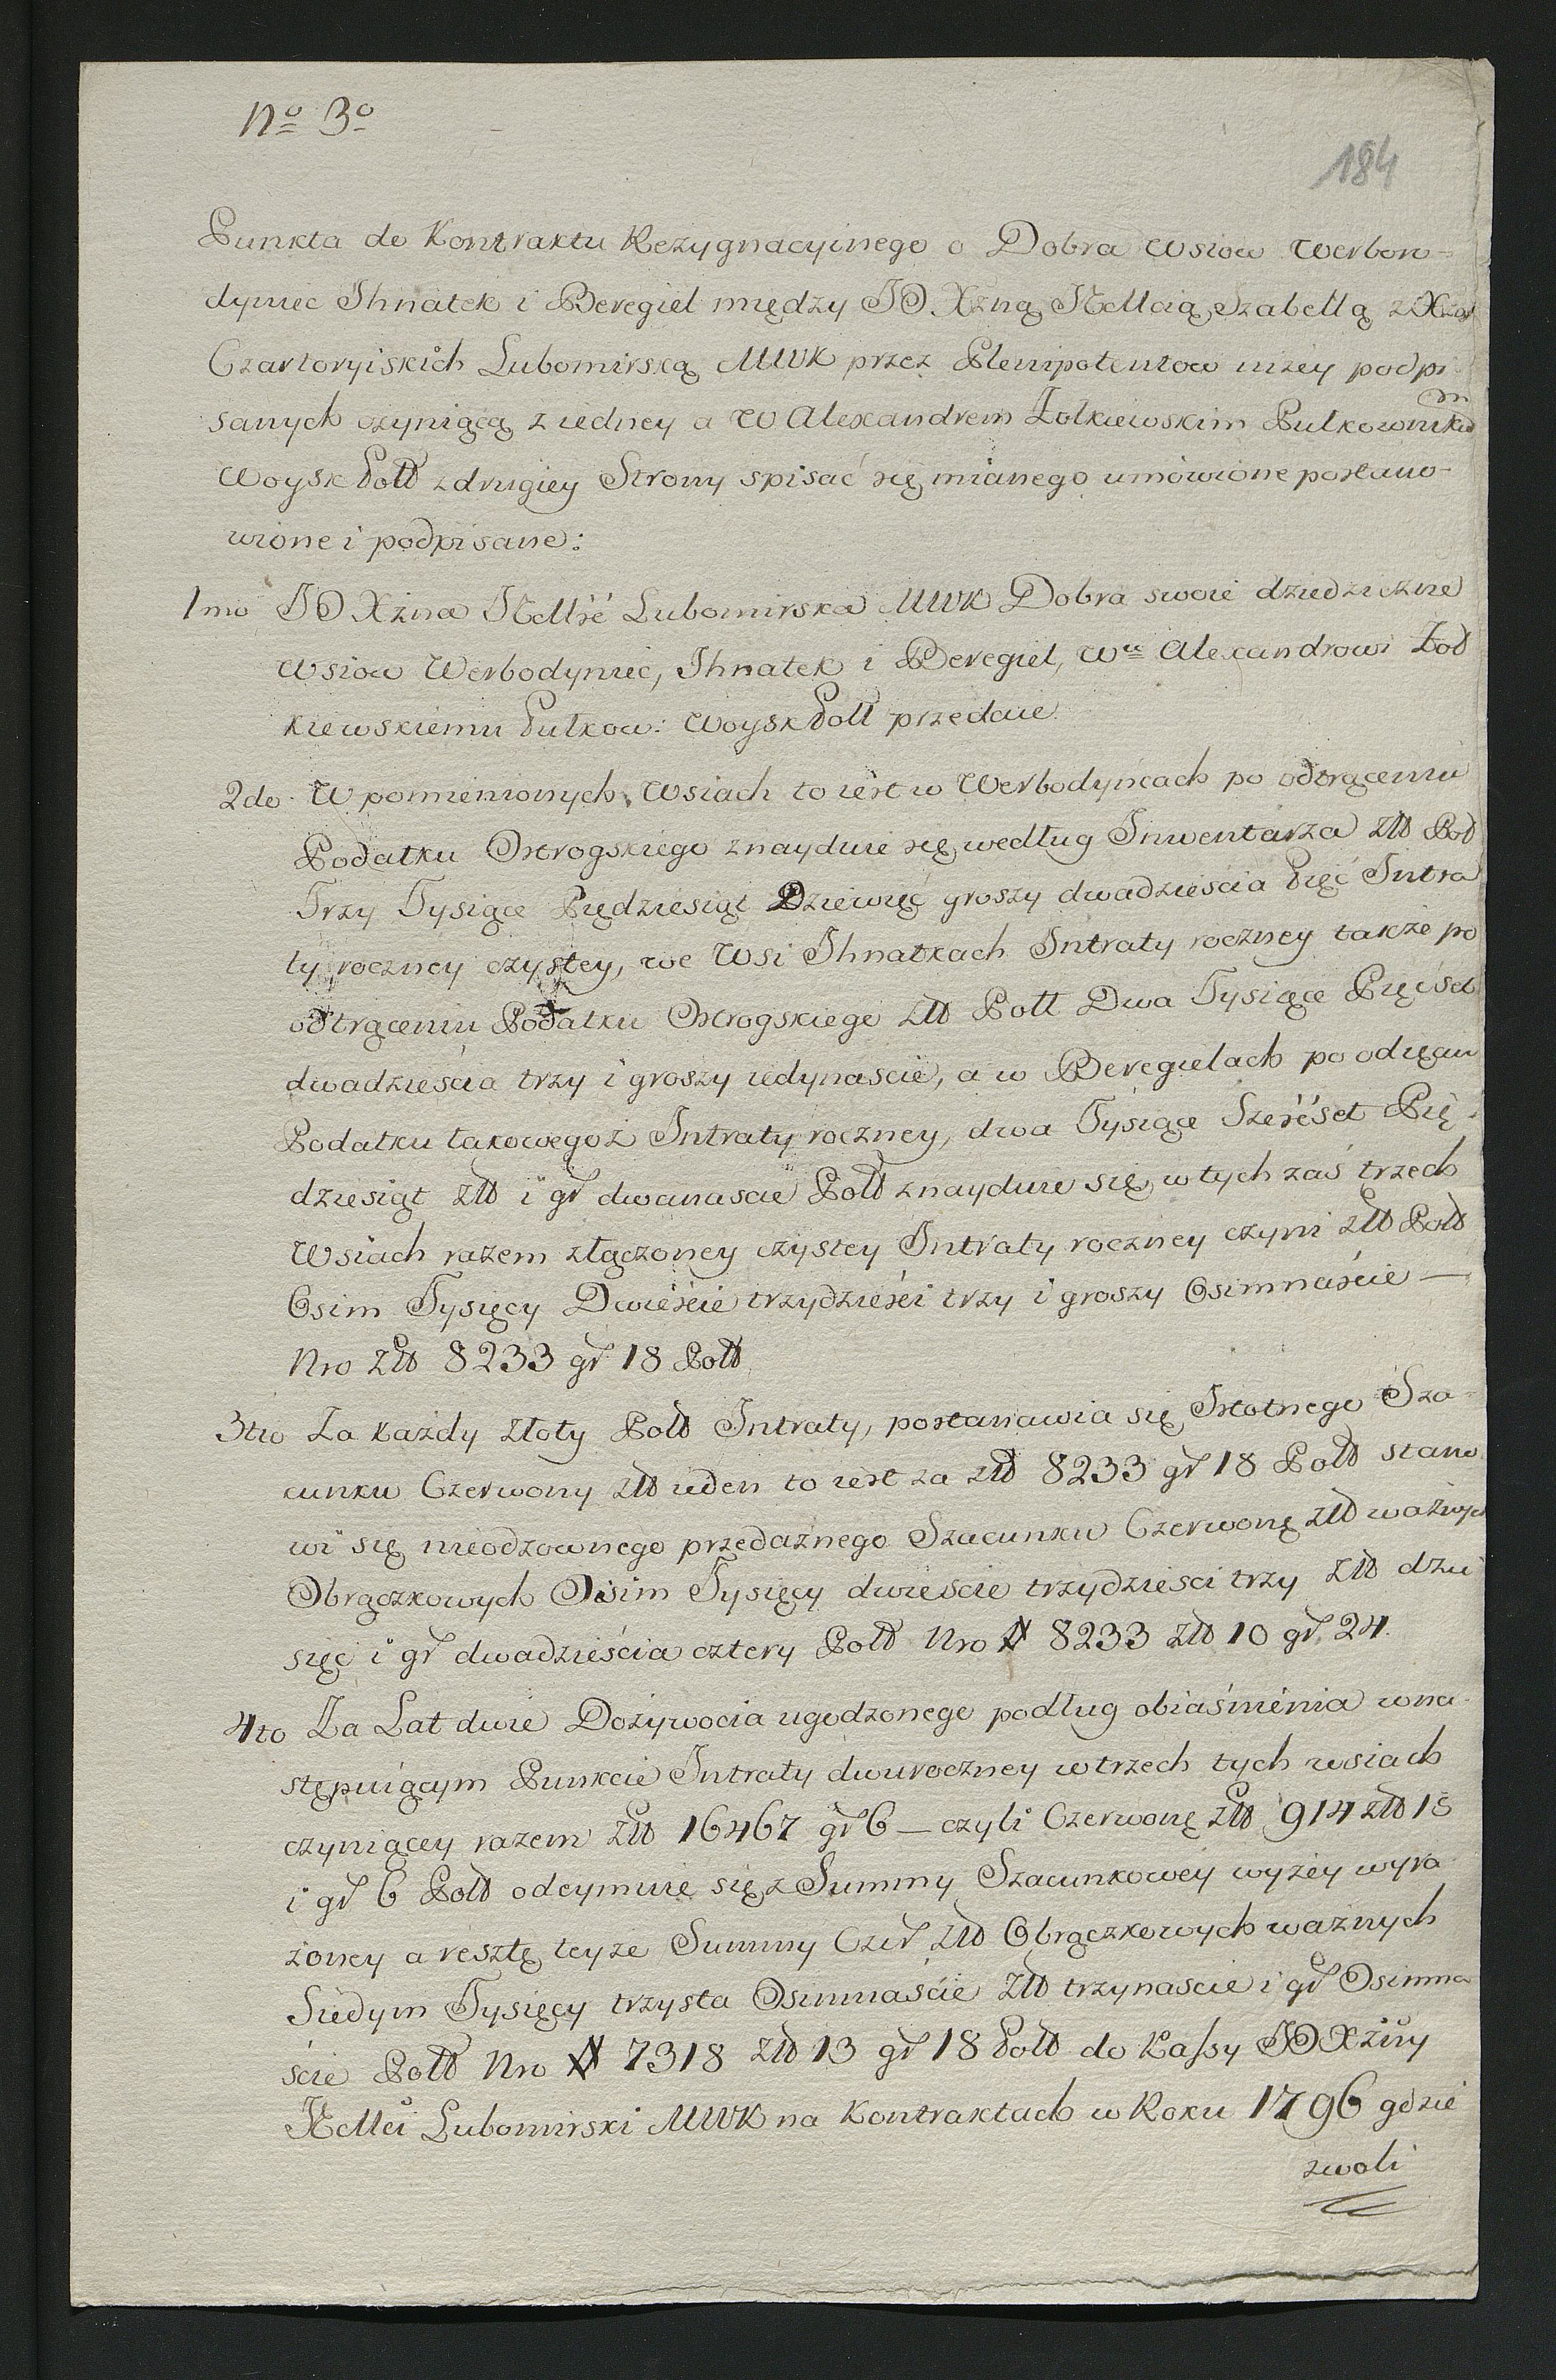 No 3o
184
Punkta do Kontraktu Rezygnacyinego o Dobra Wsiow Werbow-
dyniec Ihnatek i Beregiel między JO. Xzną Izabellą z Xżąt
Czartoryiskich Lubomirską MWK przez Plenipotentow niżey podpi
sanych czyniącą z iedney a W Alexandrem Żołkiewskim Pulkownikiem
Woysk Poll z drugiey Strony spisać się mianego umowione postano-
wione i podpisane:
1mo JO Xżna Lubomirska MWK Dobra swoie dziedziczne
Wsiow Werbodyniec, Ihnatek i Beregiel, Wu Alexandrowi Żoł
kiewskiemu Pułkow: Woysk Poll przedaie.
2do. W pomienionych Wsiach to iest w Werbodyńcach po odtrąceniu
Podatku Ostrogskiego znayduie się według Inwentarza złł Poll
Trzy Tysiące Piędziesiąt Dziewięć groszy dwadziescia Pięć Intra
ty roczney czystey, we Wsi Ihnatkach Intraty roczney także po
odtrąceniu Podatku Ostrogskiego złł Poll Dwa Tysiące Pięćset
dwadzieścia trzy i groszy iedynascie, a w Beregielach po odięciu
Podatku takowegoż Intraty roczney, dwa Tysiące Sześćset Pię-
dziesiąt złł i gr dwanascie Poll znayduie się, w tych zaś trzech
Wsiach razem złączoney czystey Intraty roczney czyni złł Poll
Osim Tysięcy Dwieście trzydzieści trzy i groszy Osimnaście —
Nro złł 8233 gr 18 Poll
3tio Za każdy złoty Poll Intraty, postanawia się Istotnego Sza-
cunku Czerwony złł ieden to iest za złł 8233 gr 18 Poll stano
wi się nieodzownego przedażnego Szacunku Czerwonę złł ważnych
Obrączkowych Osim Tysięcy dwieście trzydzieści trzy złł dzie
sięć i gr dwadzieścia cztery Poll Nro # 8233 złł 10 gr. 24.
4to Za Lat dwie Dożywocia ugodzonego podług obiaśnienia w na-
stępuiącym Punkcie Intraty dwuroczney w trzech tych wsiach
czyniącey razem złł 16467 gr 6 — czyli Czerwonę złł 914 złł 15
i gr 6 Poll odeymuie się z Summy Szacunkowey wyżey wyra
żoney a resztę teyże Summy Czer złł Obrączkowych ważnych
Siedym Tysięcy trzysta Osimnaście złł trzynascie i gr Osimna
ście Poll Nro # 7318 złł 13 gr 18 Poll do Kassy JO Xżny
Lubomirski MWK na Kontraktach w Roku 1796 gdzie
zwoli